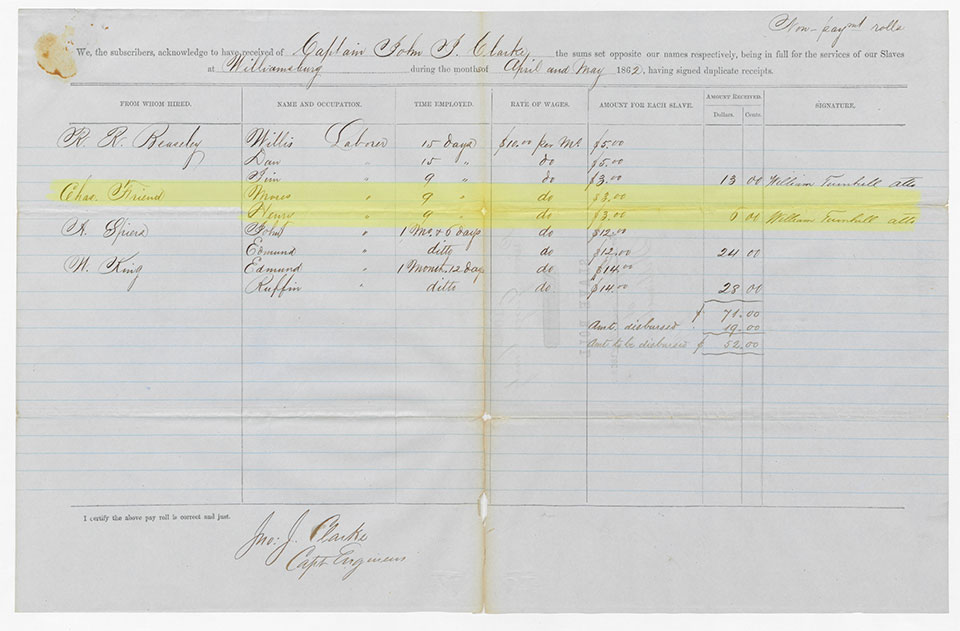 Non-paymt rolls
We, the subscribers, acknowledge to have received of Captain John J. Clarke the sums set opposite our names respectively, being in full for the services of our Slaves
at Williamsburg during the months of April and May 1862, having signed duplicate receipts.
FROM WHOM HIRED. NAME AND OCCUPATION. TIME EMPLOYED. RATE OF WAGES. AMOUNT FOR EACH SLAVE. AMOUNT RECEIVED. Dollars. Cents. SIGNATURE.
R. R. Beaseley Willis Laborer 15 days $10.00 per Mo. $5.00
Dan " 15 " do $5.00
Jim " 9 " do $3.00 13 00 William Turnbull atto
Chas. Friend " 9 " do $3.00
Henry " 9 " do $3.00 6 00 William Turnbull atto
Spiers John " 1 Mo. & 6 days do $12.00
Edmund " ditto do $12.00 24 00
W. King Edmund " 1 Month, 12 day do $14.00
Ruffin " ditto do $14.00 28 00
$ 71.00
Amt. disbursed 19.00
Amt to be disbursed $ 52.00
I certify the above pay roll is correct and just.
Jno: J. Clarke
Capt Engineers